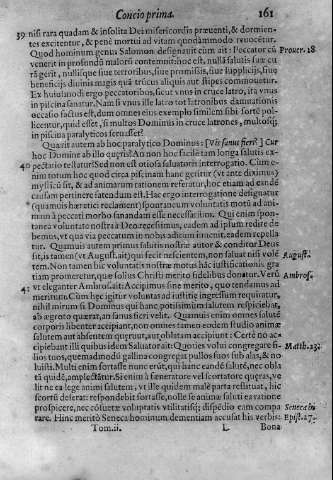 Concio prima. 161
39 nisi rara quadam & insolita Dei misericordia præuenti, & dormien-
tes excitentur, & penè mortui ad vitam quodammodo reuocētur.
Quod hominum genus Salomon designauit cùm ait: Peccator cū Prouer. 18.
venerit in profundū malorū contemnit: hoc est, nullā salutis suæ cu
rā gerit, nullisque siue terroribus, siue promissis, siue supplicijs, siue
beneficijs diuinis magis quā truncus aliquis aut stipes commouetur.
Ex huiusmodi ergo peccatoribus, sicut vnus in cruce latro, ita vnus
in piscina sanatur. Nam si vnus ille latro tot latronibus damnationis
occasio factus est, dum omnes eius exemplo similem sibi sortē pol-
licentur, quid esset, si multos Dominus in cruce latrones, multosq́;
in piscina paralyticos seruasset?
Quærit autem ab hoc paralytico Dominus: [Vis sanus fieri?] Cur
hoc Domine ab illo quæris? An non hoc facilè tam longa salutis ex-
40 pectatio testatur? Sed non est otiosa saluatoris interrogatio. Cùm e-
nim totum hoc quod circa piscinam hanc geritur (vt ante diximus)
mysticū sit, & ad animarum rationem referatur, hoc etiam ad eandē
causam pertinere fatendum est. Hac ergo interrogatione designatur
(quamuis hæretici reclament) spontaneum voluntatis motū ad ani-
mam à peccati morbo sanandam esse necessarium. Qui enim spon-
tanea voluntate nostra à Deo recessimus, eadem ad ipsum redire de
bemus, vt qua via peccatum in nobis aditum inuenit, eadem repella
tur. Quamuis autem primus salutis nostræ autor & conditor Deus
sit, is tamen (vt August. ait) qui fecit nescientem, non saluat nisi volē August.
tem. Non tamen hic voluntatis nostræ motus hāc iustificationis gra
tiam promeretur, quæ solius Christi merito fidelibus donatur. Verū Ambros.
41 vt eleganter Ambros. ait: Accipimus sine merito, quo tendamus ad
meritum. Cùm hec igitur voluntas ad iustitiæ ingressum requiratur,
nihil mirum si Dominus qui hanc potissimùm salutem respiciebat,
ab ægroto quærat, an sanus fieri velit. Quamuis enim omnes salutē
corporis libenter accipiant, non omnes tamen eodem studio animæ
salutem aut absentem quærunt, aut oblatam accipiunt: Certè no ac-
cipiebant illi quibus idem Saluator ait: Quoties volui congregare fi- Matth. 23.
lios tuos, quemadmodū gallina congregat pullos suos sub alas, & no
luisti. Multi enim fortasse nunc erūt, qui hanc eandē salutē, nec obla
tā quidē, amplectātur. Si enim à fœneratore vel scortatore quæras, ve
lit ne ea lege animi salutem, vt ille quidem malè parta restituat, hic
scorta deserat: respondebit fortasse, nolle se animæ saluti ea ratione
prospicere, nec cōsultæ voluptatis vtilitatisq́; dispēdio eam compa
rare. Hinc meritò Seneca hominum dementiam accusat his verbis: Seneca in
Epist. 27.
Tom. ii. L Bona